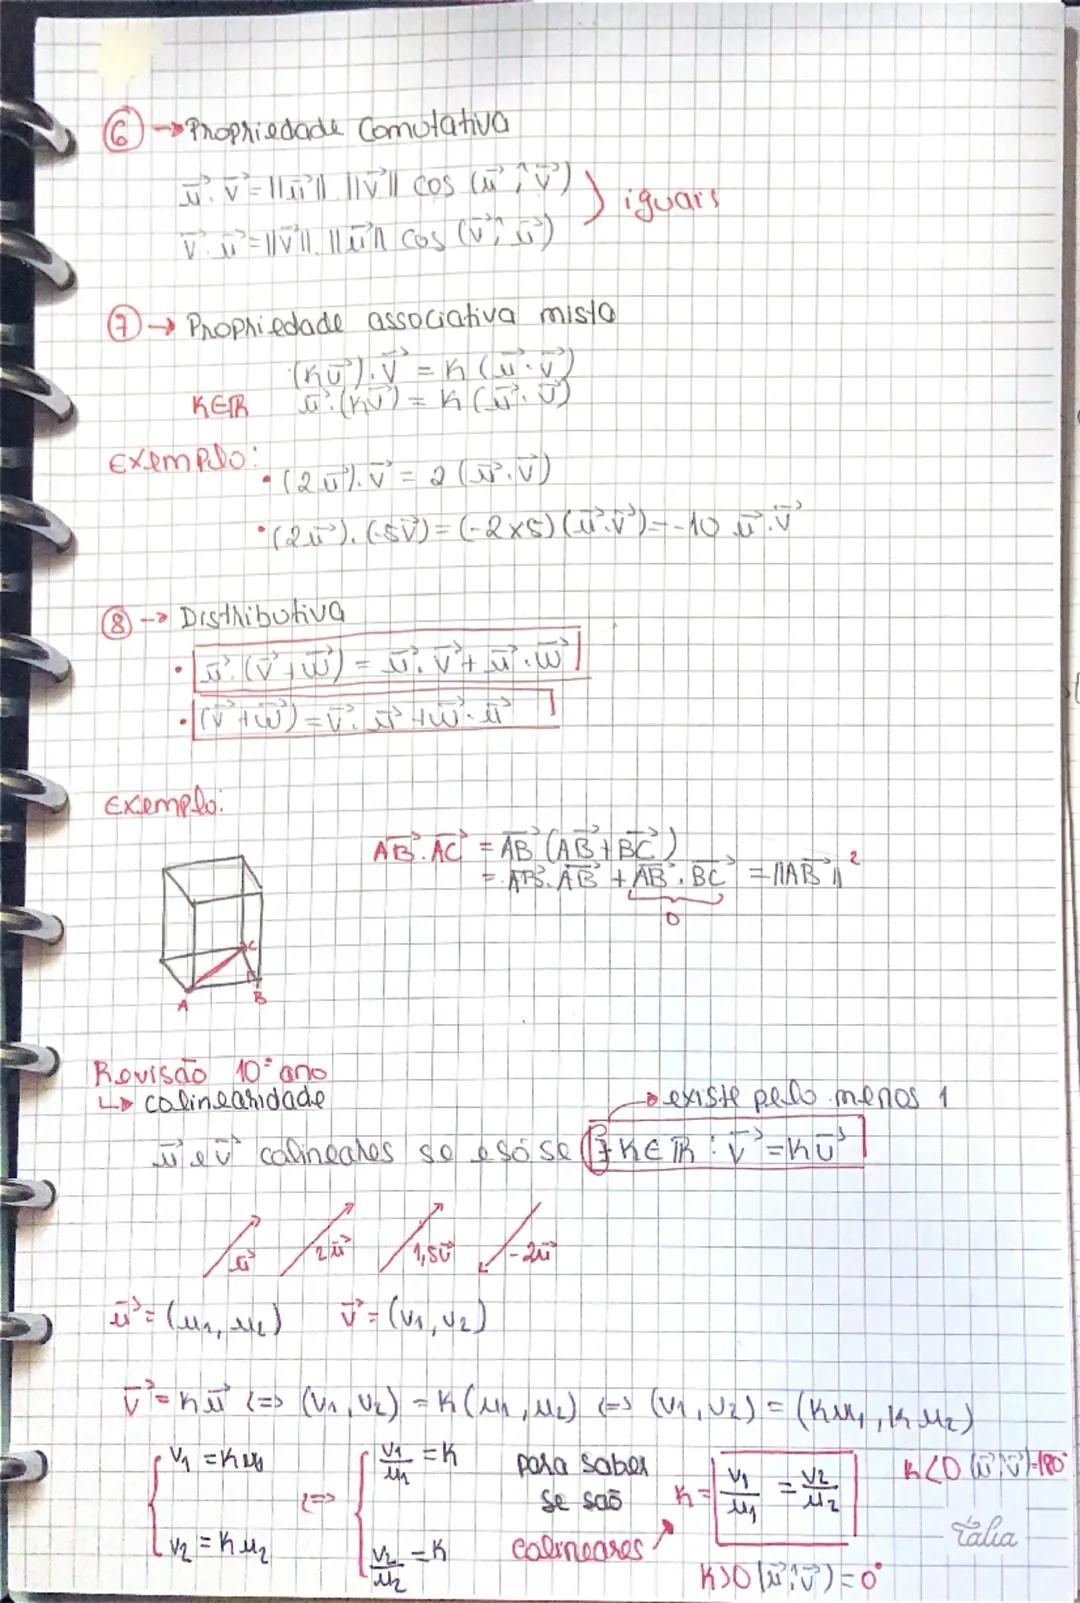 6 → Propriedade Comutativa
u⃗ . v⃗ = ||u⃗|| . ||v⃗|| cos (u⃗ ^ v⃗) } iguais
v⃗ . u⃗ = ||v⃗|| . ||u⃗|| cos (v⃗ ^ u⃗)
7 → Propriedade associativa mista
(ku⃗) . v⃗ = k (u⃗ . v⃗)
K∈ℝ u⃗ . (kv⃗) = k (u⃗ . v⃗)
Exemplo:
• (2u⃗) . v⃗ = 2 (u⃗ . v⃗)
• (2u⃗) . (-5v⃗) = (-2×5) (u⃗ . v⃗) = -10 u⃗ . v⃗
8 → Distributiva
• u⃗ . (v⃗ + w⃗) = u⃗ . v⃗ + u⃗ . w⃗
• (v⃗ + w⃗) = v⃗ . u⃗ + w⃗ . u⃗
Exemplo:
AB⃗ . AC⃗ = AB⃗ (AB⃗ + BC⃗)
= AB⃗ . AB⃗ + AB⃗ . BC⃗ = ||AB⃗||²
0
C
A
B
Revisão 10º ano
↳ colinearidade
→ existe pelo menos 1
u⃗ e v⃗ colineares se e só se ∃ K∈ℝ : v⃗ = ku⃗
u⃗ 2u⃗ 1,5u⃗ -2u⃗
u⃗ = (u₁, u₂) v⃗ = (v₁, v₂)
v⃗ = ku⃗ (=) (v₁, v₂) = k(u₁, u₂) (=) (v₁, v₂) = (ku₁, ku₂)
{ v₁ = ku₁ (=) { v₁/u₁ = k para saber k = v₁/u₁ = v₂/u₂ k<0 (u⃗ ^ v⃗) = 180
se são
v₂ = ku₂ v₂/u₂ = k colineares
Tália
k>0 (u⃗ ^ v⃗) = 0°